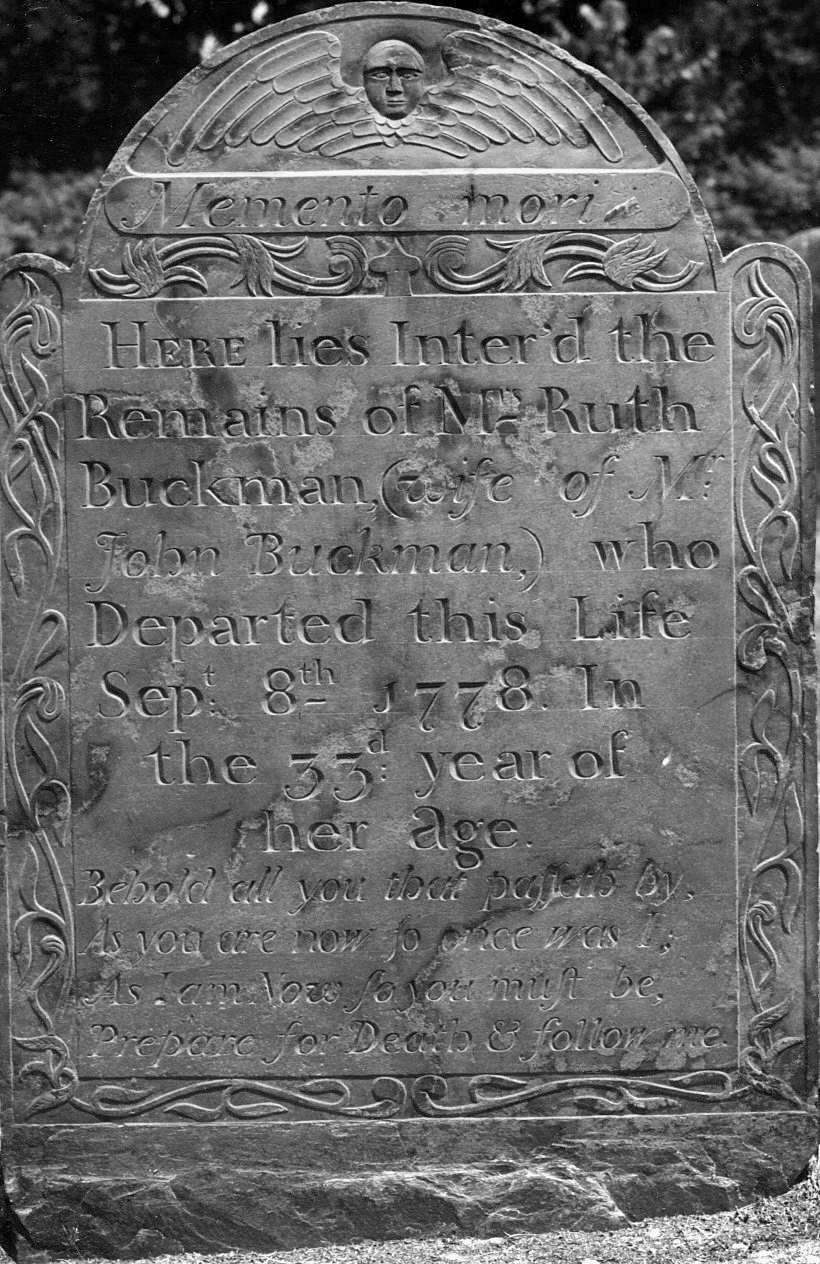 Memento mori
HERE lies Inter'd the
Remains of Mrs. Ruth
Buckman, (wife of Mr.
John Buckman,) who
Departed this Life
Sept. 8th 1778. In
the 33d. year of
her age.
Behold all you that paſſeth by,
As you are now ſo once was I;
As I am Now ſo you muſt be,
Prepare for Death & follow me.